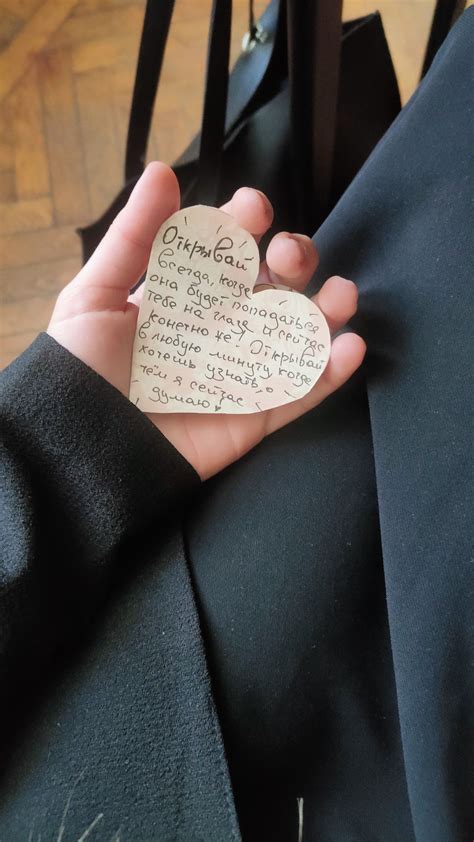 Открывай
всегда, когда
она будет попадаться
тебе на глаза. И сейчас
конечно же! Открывай
в любую минуту, когда
хочешь узнать, о
чём я сейчас
думаю